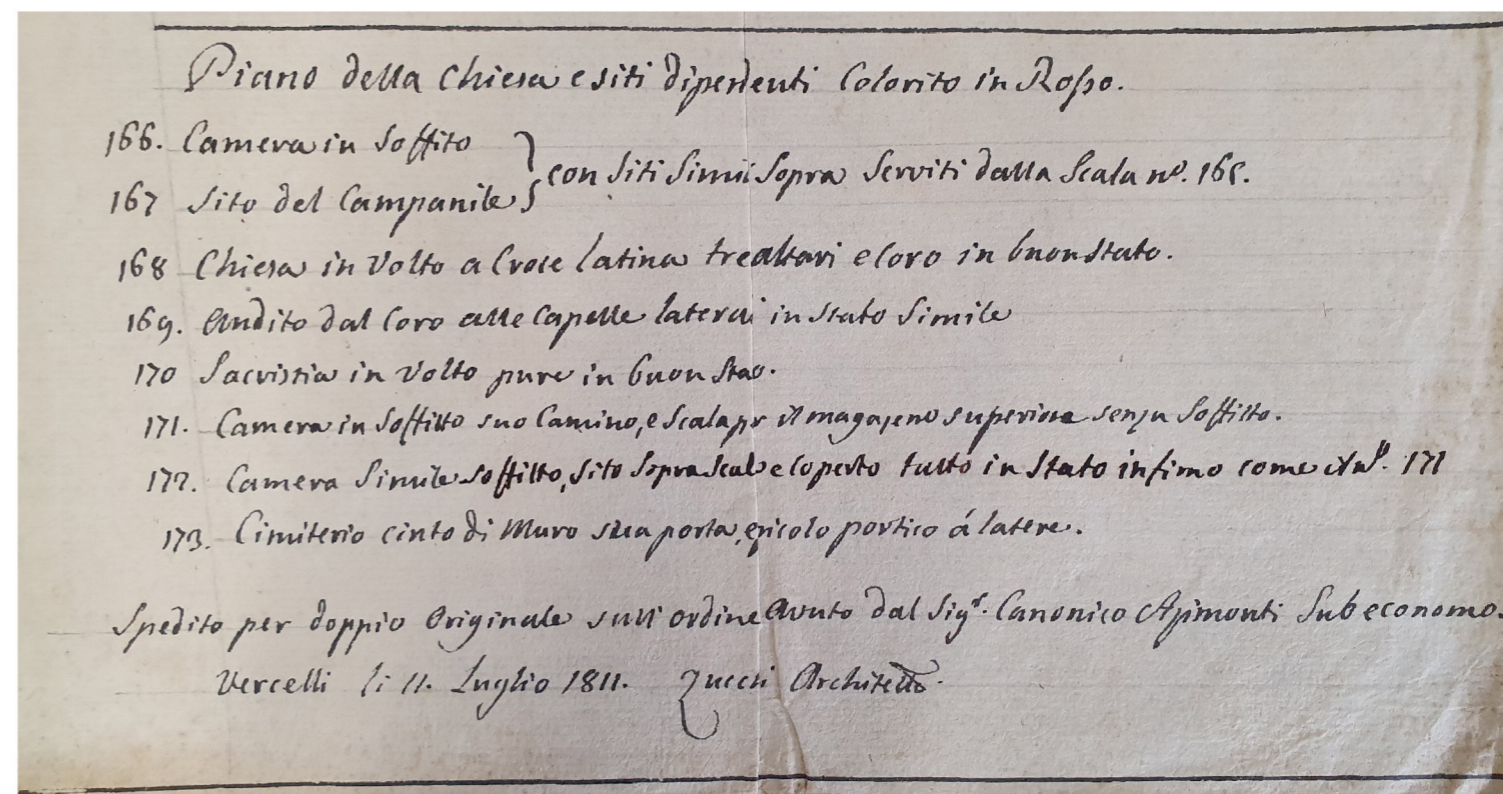 Piano della Chiesa e siti dipendenti Colorito in Rosso.
166. Camera in Soffito
con siti Simili Sopra Serviti dalla Scala nº. 165.
167 Sito del Campanile
168 Chiesa in Volto a Croce latina tre altari e Coro in buon Stato.
169. Andito dal Coro alle Capelle laterali in stato Simile
170 Sacristia in Volto pure in buon Stao.
171. Camera in Soffitto suo Camino, e Scala pr il magazeno superiore senza Soffitto.
172. Camera Simile soffitto, sito Sopra Scal e Coperto tutto in Stato infimo come il nº. 171
173. Cimiterio cinto di Muro sua porta, e picolo portico á latere.
Spedito per doppio Originale sull' ordine Avuto dal Sigr. Canonico Subeconomo.
Vercelli li 11. Luglio 1811. Architetto.